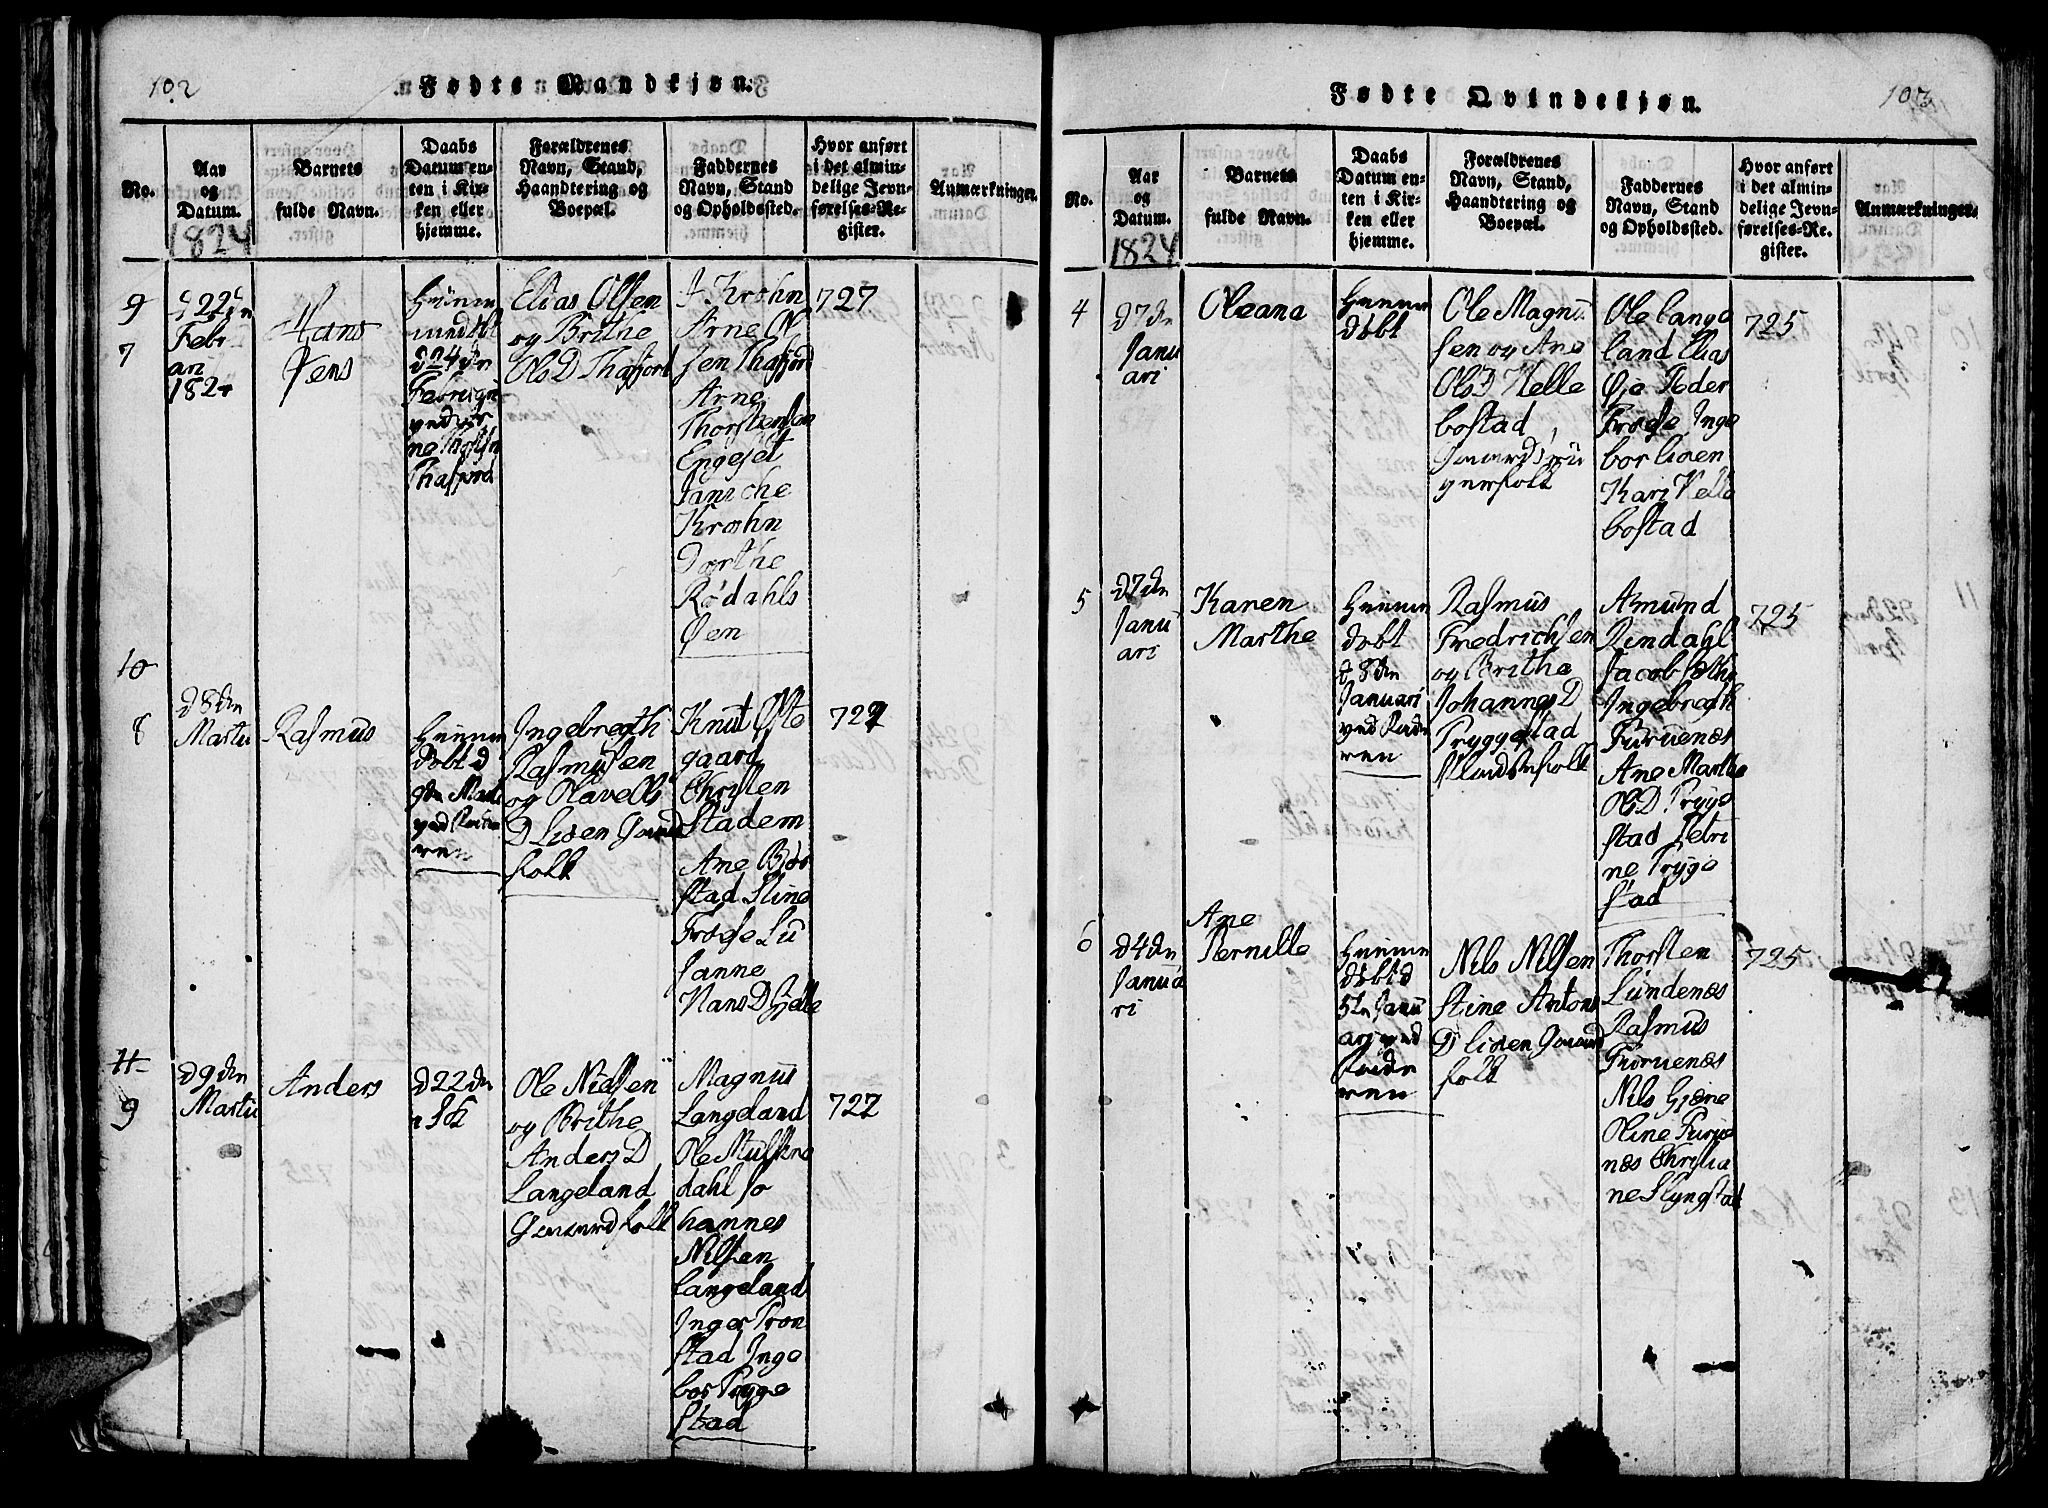 102
Fødte Mandkjøn.
No.
Aar
og
Datum.
1824
Barnets
fulde Navn.
Daabs
Datum en-
ten i Kir-
ken eller
hjemme.
Forældrenes
Navn, Stand,
Haandtering og
Boepæl.
Faddernes
Navn, Stand
og Opholdssted.
Hvor anført
i det almin-
delige Jevn-
førelses-Re-
gister.
Anmærkninger.
9
7
d 22 dn
Febru
ari
1824
Hans
Jens
d 24 dn
ved Ar
ne Thorstn
Thafjord
Elias Olsen
og Brithe
Ols D Thafjord
J. Krohn
Arne Ol
sen Thafjord
Arne
Thorstensen
Engeset
Janiche
Krohn
Dorthe
Rødahls
Øen
727
10
8
d 8 dn
Martii
Rasmus
Hiemme
døbt d
9 dn Marti
ved Fade
ren
Ingebregth
Rasmusen
og Olave Ols
D Lisen Gaard
folk
Knut Øste
gaard
Christen
Stadem
Ane
stad Stine
Frøise Lu
sanne
Hans D Gjelle
727
11
9
d 9 dn
Martii
Anders
d 22 dn
Ole Nielsen
og Brithe
Anders D
Langeland
Gaardfolk
Magnus
Langeland
Ole
dahl Jo
hannes
Nilsen
Langeland
Inger Tron
stad Inge
bor Tryge
stad
727
103
Fødte Qvindekjøn.
No.
Aar
og
Datum.
1824
Barnets
fulde Navn.
Daabs
Datum en-
ten i Kir-
ken eller
hjemme.
Forældrenes
Navn, Stand,
Haandtering og
Boepæl.
Faddernes
Navn, Stand
og Opholdssted.
Hvor anført
i det almin-
delige Jevn-
førelses-Re-
gister.
Anmærkninger.
4
d 7 dn
Janu
ari
Oleana
Hiemme
døbt
Ole Magnu
sen og Ane
Ols D Velle
bostad
Ole Lange
land Elias
Øie Peder
Frøise Inge
bor Lisen
Kari Velle
bostad
725
5
d 7 dn
Janu
ari
Karen
Marthe
Hiemme
døbt
d 8 dn
Januari
ved Fade
ren
Rasmus
Fredrichsen
og Brithe
Johannes D
Tryggestad
Amund
Rindahl
Jacob
Ingebregth
Furuenæs
Ane Marthe
Ols D Tryge
stad Petri
ne Tryge
stad
725
6
d 4 dn
Janua
ri
Ane
Pernille
Hiemme
døbt d
5 dn Janu
ari ved
Fade
ren
Nils Nilsen
Stine Antons
D Lisen Gaard
folk
Thorsten
Lundenæs
Rasmus
Furuenæs
Nils Gjære
Oline Furue
næs Christia
ne Slyngstad
725